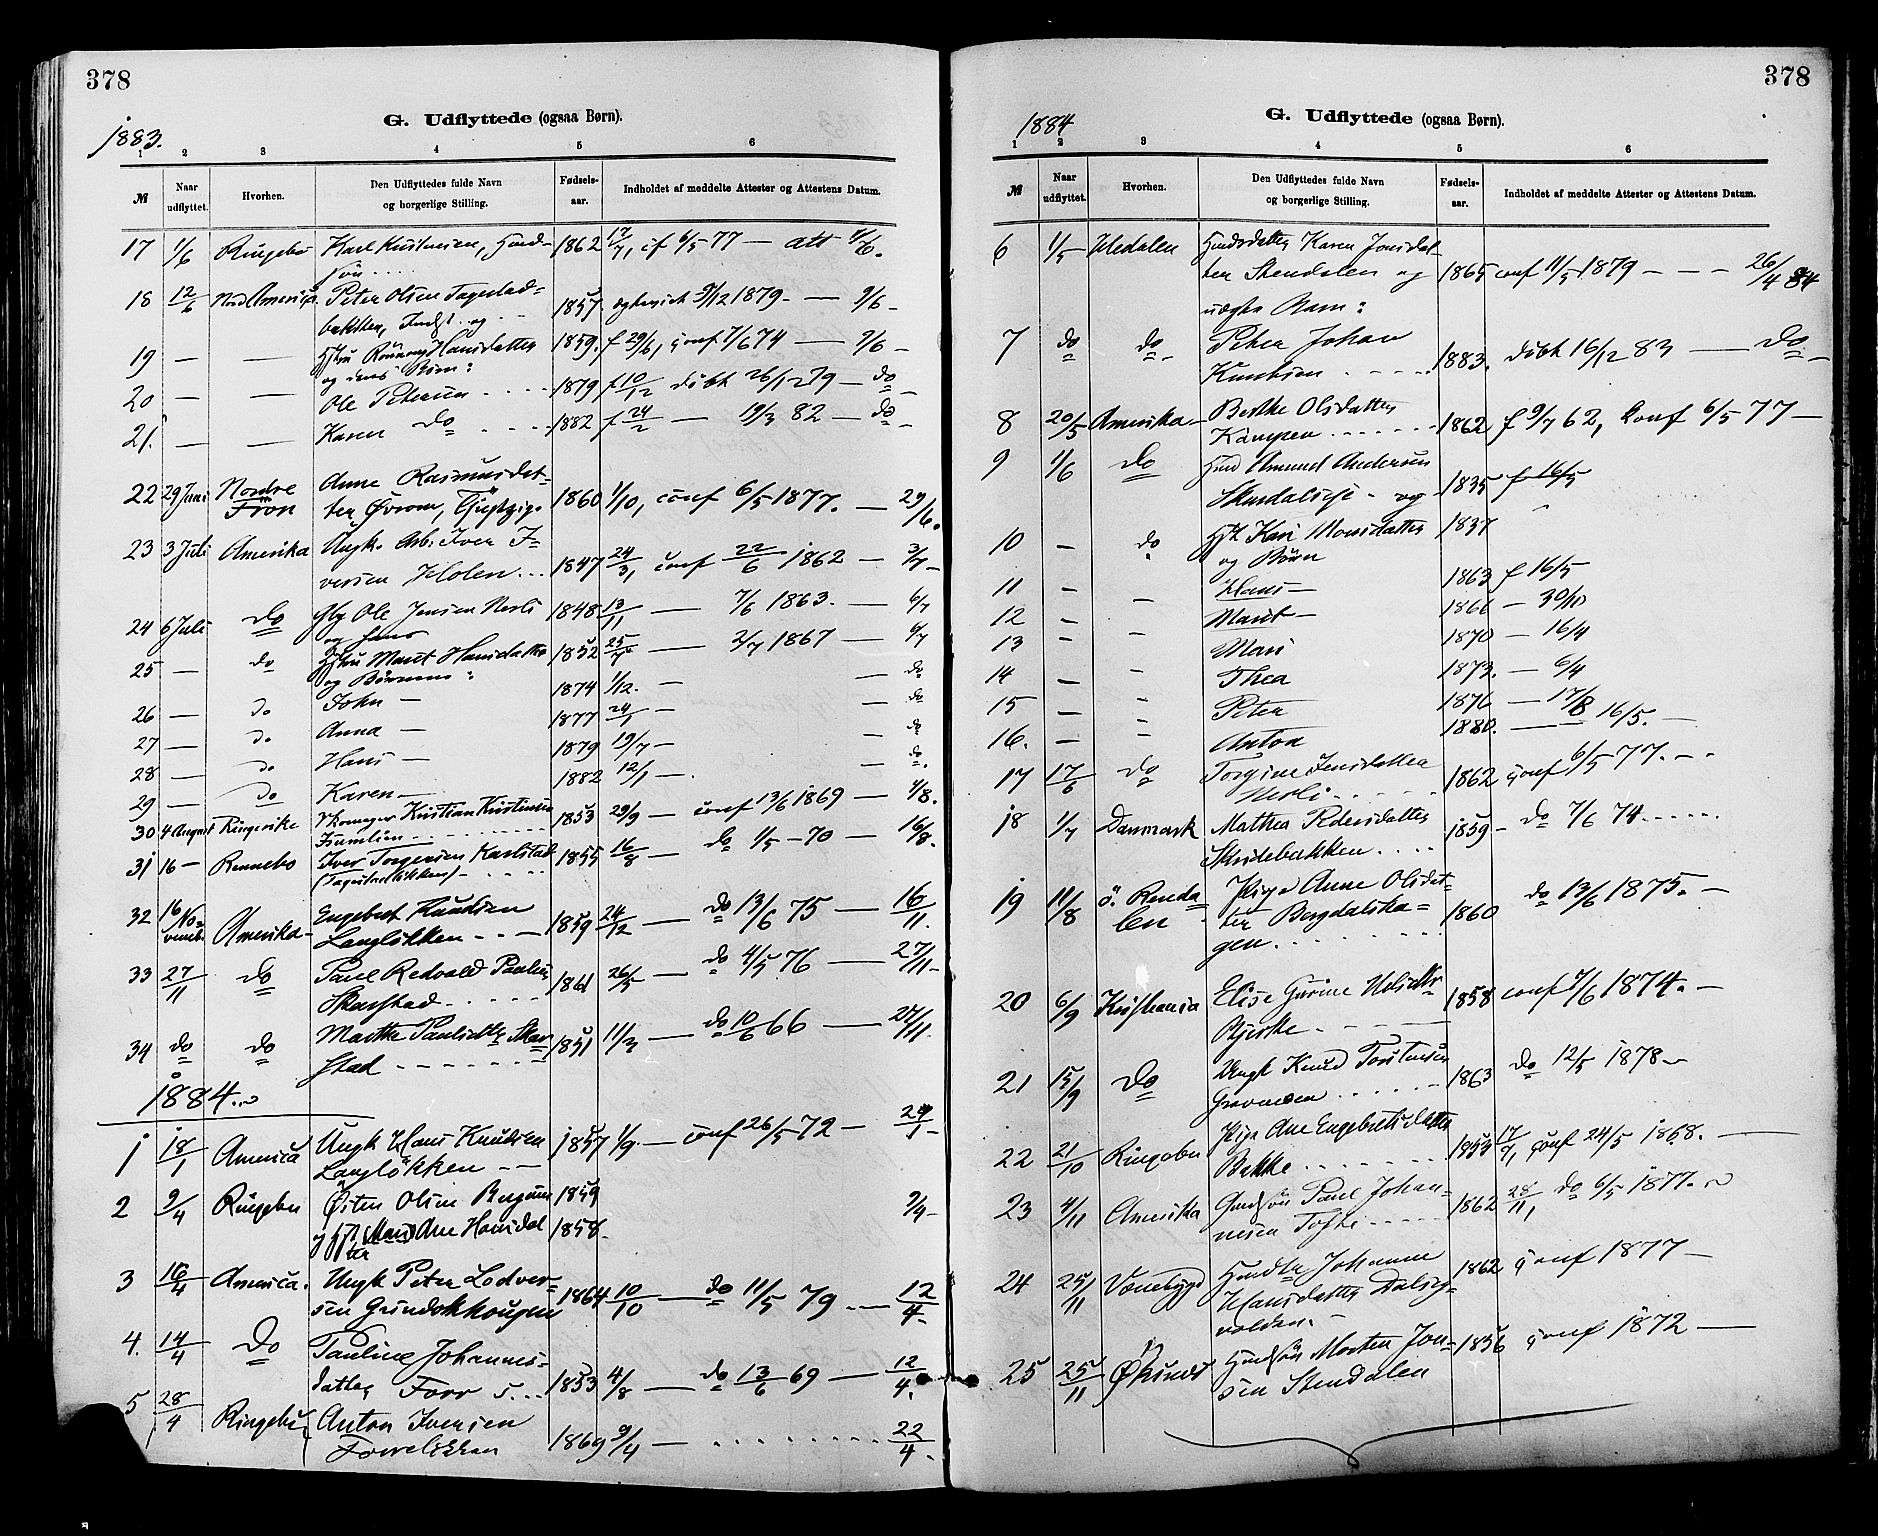 378
G. Udflyttede (ogsaa Børn).
1883.
1 2 3 4 5 6
№ Naar udflyttet. Hvorhen. Den Udflyttedes fulde Navn og borgerlige Stilling. Fødsels-aar. Indholdet af meddelte Attester og Attestens Datum.
17 1/6 Ringebu Karl Kristensen, 1862 cf 6/5 77 — att 1/6.
18 12/6 Nord America Peter Olsen Tagestad-
bakken, Indst. og 1857 1879. — 9/6 —
19 — — Hstru Rønnaug Hansdatter 1859. f 29/6, conf 7/6 74 — 9/6 —
og deres Børn:
20 — — Ole Petersen 1879 f 10/12 døbt 26/12 79 — do —
21. — — Karen do 1882 f 24/2 — 19/3 82 — do —
22 29 Juni Nordre Fron Anne Rasmusdat-
ter Øvrom, 1860 1/10, conf 6/5 1877. — 29/6.
23 3 Juli Amerika Ungk. Arb. Iver I-
versen Holen 1847 24/3, conf 22/6 1862 — 3/7 —
24 6 Juli do Gbr Ole Jensen Nerli 1848 13/11 — 7/6 1863. — 6/7
og hans
25 — do Hstru Marit Hansdatter 1852 25/7 — 2/7 1867 — 6/7
og Børnene:
26 — do John — 1874 1/12. — — do
27 — do Anna — 1877 24/1 — — do
28 — do Hans — 1879 19/7 — — do
29 — do Karen — 1882 12/1 — — do.
30 4 August Ringerike Skomager Kristian Kristiansen 1853 29/9 — conf 13/6 1869 — 4/8.
31 16 — Rennebo Iver Torgersen Karlstad 1855 16/8 — do 1/5 — 70 — 16/8.
(Tagestadløkken)
32 16 November Amerika — Engebret Knudsen
Langløkken 1859 24/12 — do 13/6 75 — 16/11.
33 27/11 do Paul Redvald Paulsen
Skarstad 1861 26/5 — do 4/5 76 — 27/11 —
34 do do Marthe Paulsdatter Skar-
stad 1851 11/3 — do 10/6 66 — 27/11.
1884.
1 18/1 America Ungk Hans Knudsen
Langløkken 1857 1/9 — conf 26/5 72 — 29/1 —
2 9/4 Ringebu Østen Olsen 1859 9/4 —
og Hst (Mari) Ane Hansdat
ter 1858.
3 16/4 America. Ungk Peter Lodver-
sen Grindstkhougen 1864 10/10 — do 11/5 79 — 12/4.
4. 14/4 do Pauline Johannes-
datter Forr 1853 4/8 — do 13/6 69 — 12/4.
5 28/4 Ringebu Anton Iversen 1869 9/4 — 22/4.
378
G. Udflyttede (ogsaa Børn).
1884
1 2 3 4 5 6
№ Naar udflyttet. Hvorhen. Den Udflyttedes fulde Navn og borgerlige Stilling. Fødsels-aar. Indholdet af meddelte Attester og Attestens Datum.
6 1/5 Uledalen Husdsdatter Karen Jonsdat-
ter Stendalen og 1865 conf 11/5 1879 — — — 26/4 84
uægte Barn:
7 do do — Peter Johan
Knudsen 1883. døbt 16/12 83 — do —
8 20/5 Amerika — Berthe Olsdatter
Kampen 1862 f 9/7 62, Conf 6/5 77 —
9 1/6 do Hmd Amund Andersen
og 1835 f 16/5
10 — do Hst Kari Monsdatter 1837
og Børn
11 — — Hans — 1863 f 16/5
12 — — Marit — 1866 — 30/10
13 — — Mari 1870 — 16/4
14 — — Thea 1873. — 6/4
15 — — Peter 1876 — 17/8
16. — — Anton 1880. — 16/5. —
17 17/6 do Torgine Jensdatter
Nerli 1862 conf 6/5 77. —
18 1/7 Danmark Mathea Pedersdatter 1859 — do 7/6 74
Skridebakken
19 11/8 ö. Renda-
len Pige Anne Olsdat-
ter Bergdalsha-
gen 1860 do 13/6 1875. —
20 6/9 Kristiania Elise Gurine Nilsdtr
Bjerke 1858 conf 7/6 1874. —
21 15/9 do Ungk Knud Torstensen 1863 do 12/5 1878 —
22 21/10 Ringebu Pige Ane Engebretsdatter
Bakke 1853 17/7, conf 24/5 1868. —
23 4/11 Amerika Gmdsøn Paul Johan-
nesen Tofte 1862 28/11, do 6/5 1877. —
24 25/11 Vonebygd Johanne
Hansdatter Dalseg-
volden. 1862 conf 1877 —
25 25/11 Husmdsøn Morten Jon-
sen Stendalen 1856 conf 1872 —